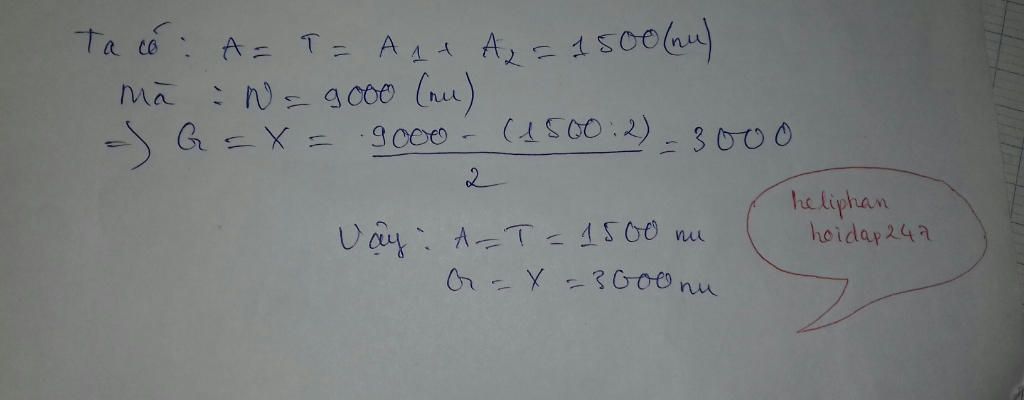 Ta có: A = T = A1 + A2 = 1500 (nu)
Mà : N = 9000 (nu)
=> G = X = 9000 - (1500:2) / 2 = 3000
Vậy: A = T = 1500 nu
G = X = 3000 nu
heliphan
hoidap247